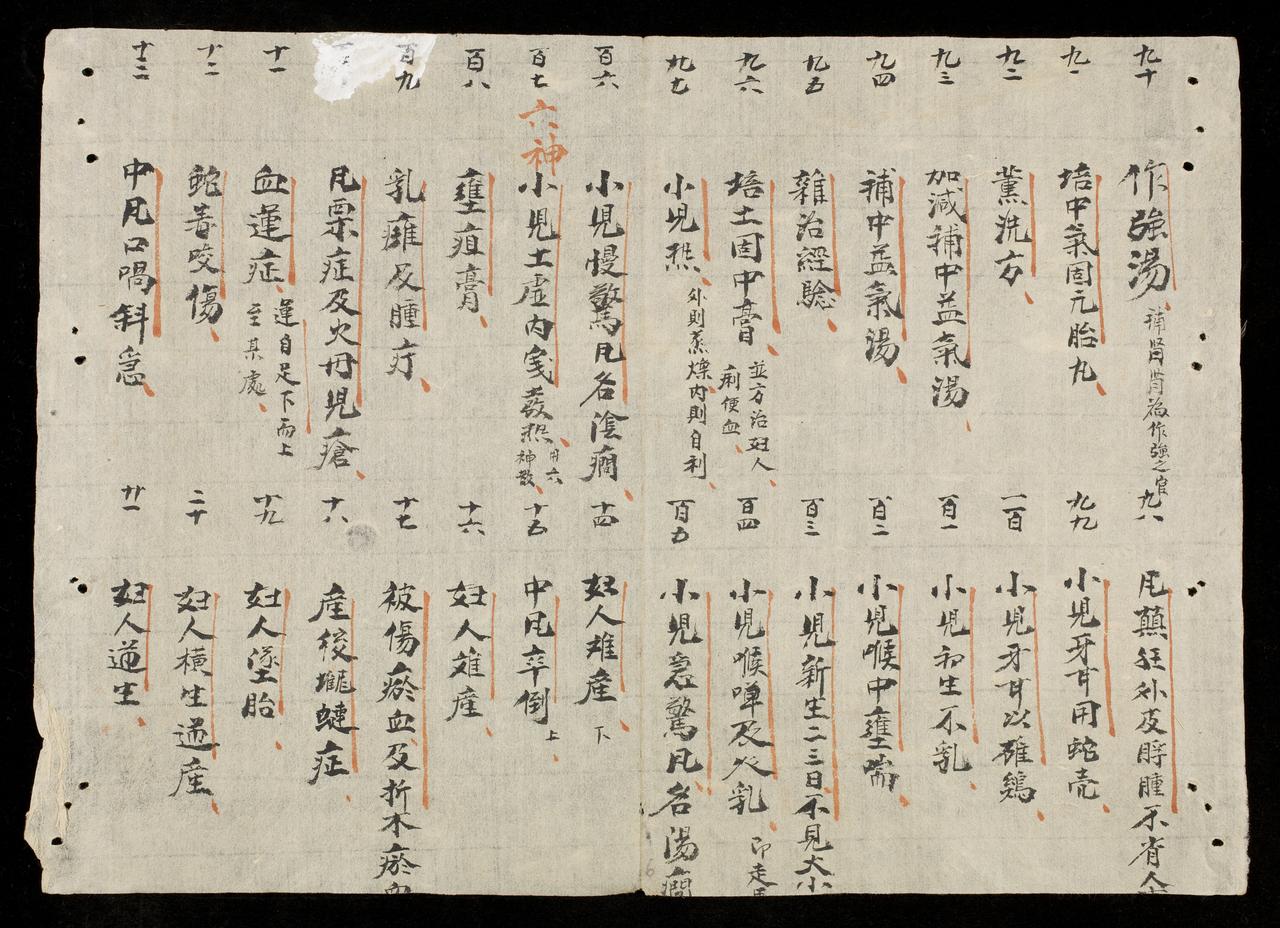 九十 作強湯 補腎腎為作強之官
九一 培中氣固元胎丸
九二 薰洗方
九三 加減補中益氣湯
九四 補中益氣湯
九五 雜治經驗
九六 培土固中膏 並方治妇人痢便血
九七 小児热 外則蒸燥內則自利
百六 小児慢驚凡名陰癇
百七 六神 小児土虛內発热 用六神散
百八 壅疽膏
百九 乳癰及腫疔
凡栗症及火丹児瘡
十一 血運症 運自足下而上至其處
十二 蛇毒咬傷
十三 中凡口喎斜急
九八 凡顛狂外皮腫不省人
九九 小児牙甘用蛇壳
一百 小児牙甘以雄鷄
百一 小児初生不乳
百二 小児喉中壅喘
百三 小児新生二三日不見大小
百四 小児喉单及乳 即走
百五 小児急驚凡名湯癇
十四 妇人难産 下
十五 中凡卒倒 上
十六 妇人难産
十七 被傷瘀血及折木瘀血
十八 産後症
十九 妇人墜胎
二十 妇人橫生逆産
廿一 妇人逆生